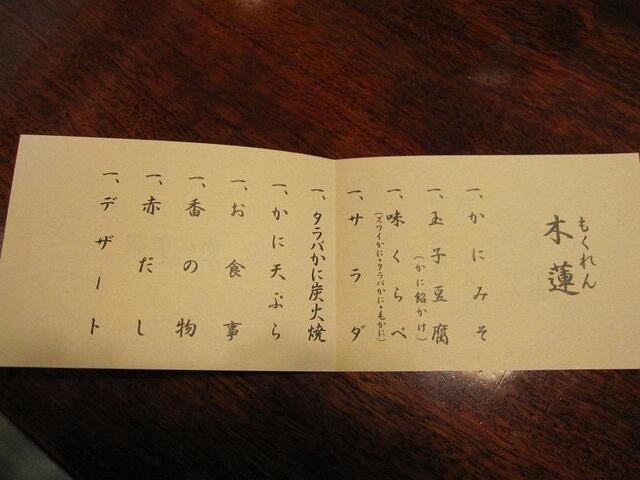 もくれん
木蓮
一、かにみそ
一、玉子豆腐
(かに餡かけ)
一、味くらべ
(ズワイかに・タラバかに・毛かに)
一、サラダ
一、タラバかに炭火焼
一、かに天ぷら
一、お食事
一、香の物
一、赤だし
一、デザート